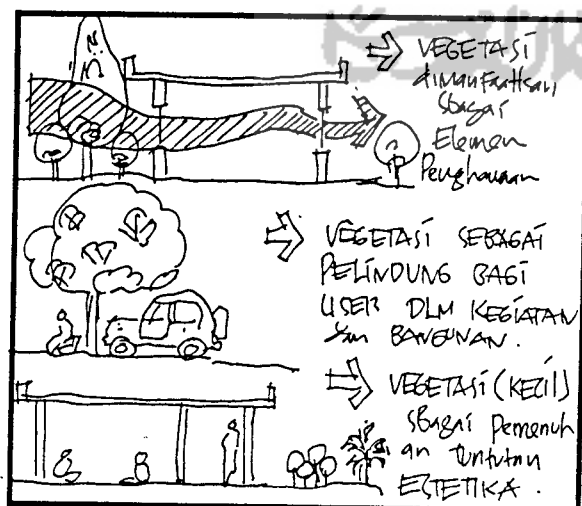 VEGETASI
dimanfaatkan
sbagai
Elemen
Penghawaan
VEGETASI SEBAGAI
PELINDUNG BAGI
USER DLM KEGIATAN
dan BANGUNAN.
VEGETASI (KECIL)
sbagai pemenuh
an tuntutan
ESTETIKA.